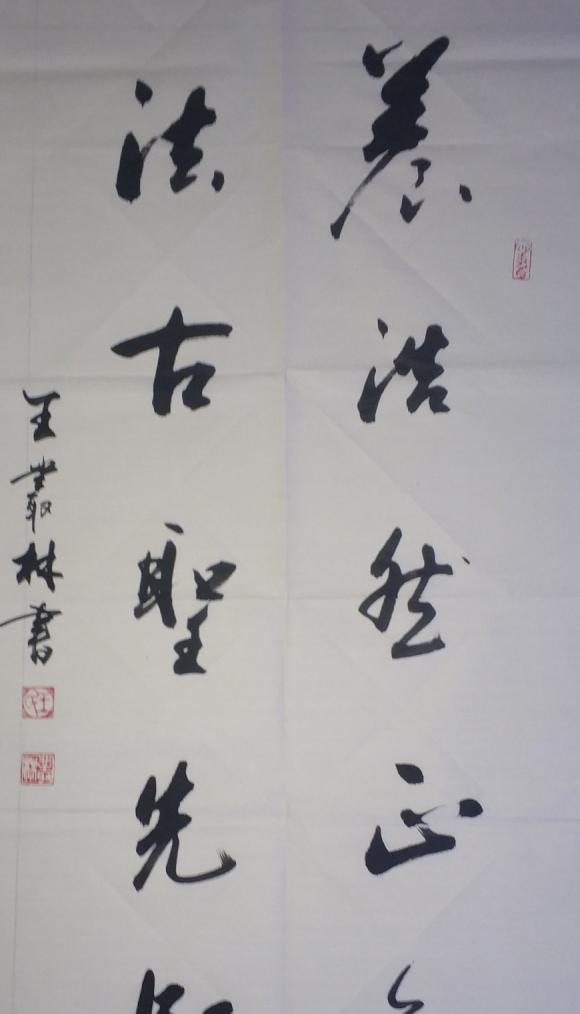 養浩然正
法古聖先
王叢林書